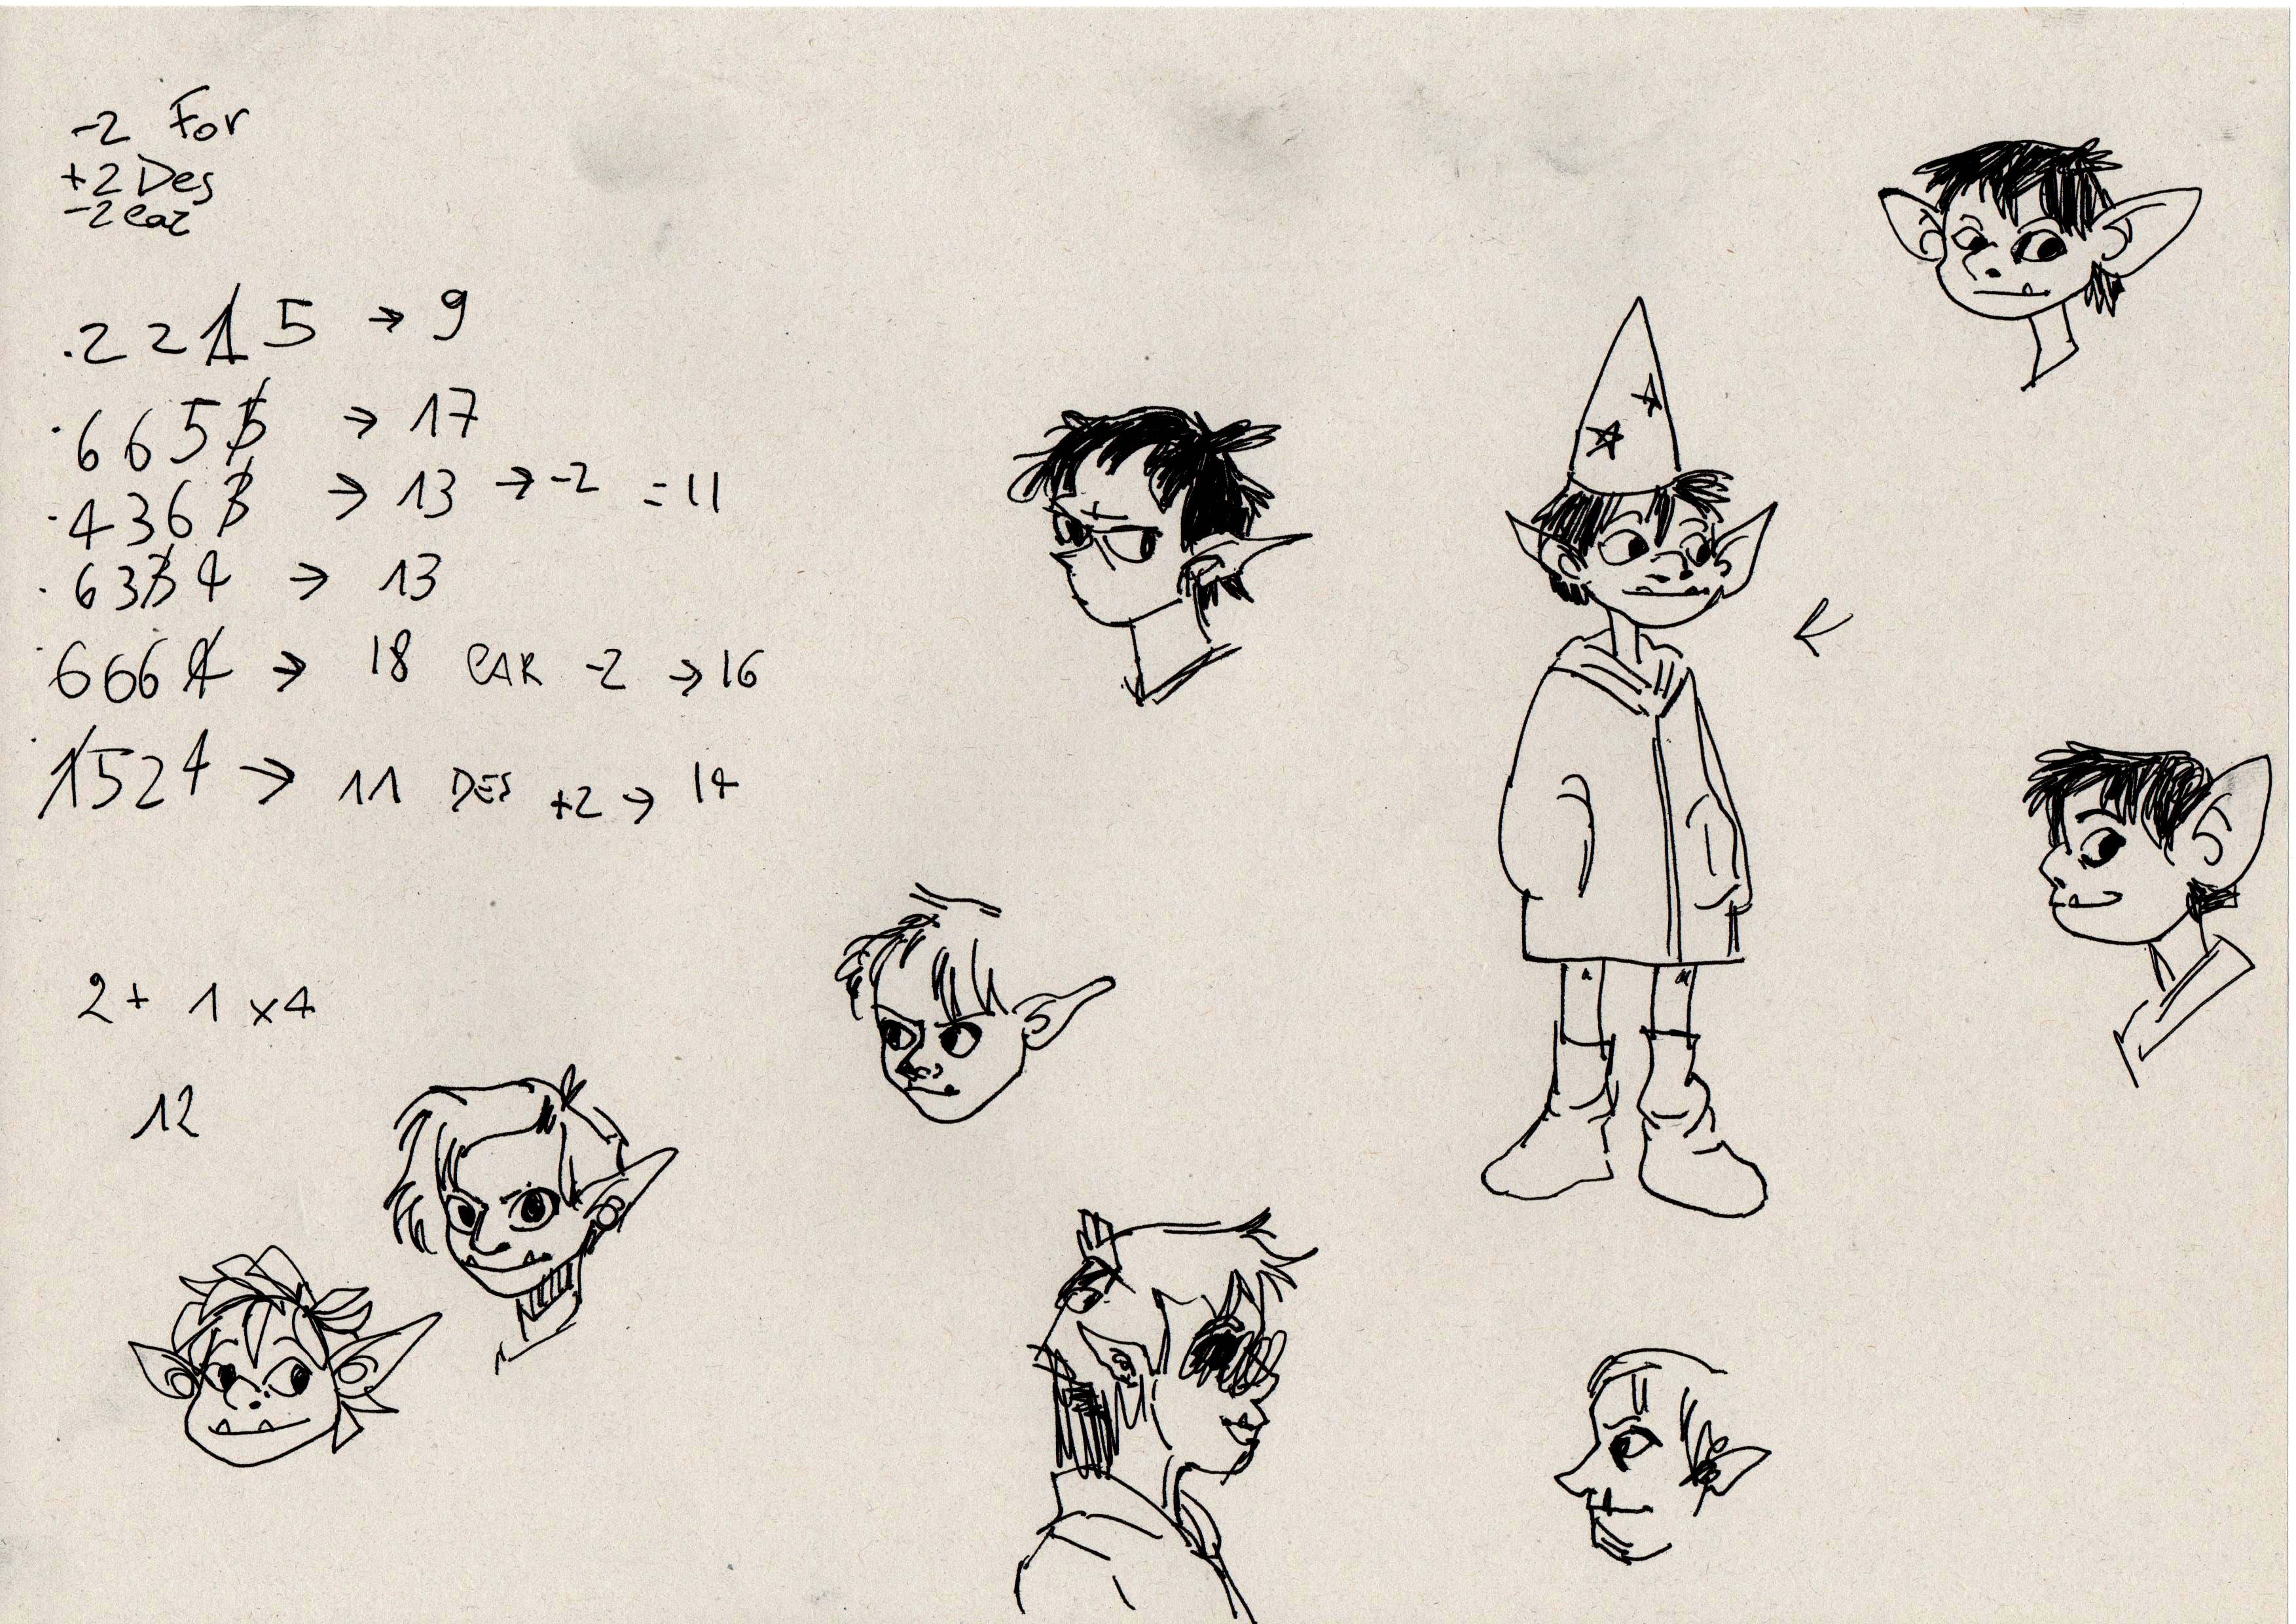 -2 For
+2 Des
-2 Car
. 2 2 1 5 → 9
. 6 6 5 5 → 17
. 4 3 6 3 → 13 → -2 = 11
. 6 3 3 4 → 13
. 6 6 6 4 → 18 CAR -2 → 16
. 1 5 2 4 → 11 DES +2 → 14
2 + 1 x 4
12